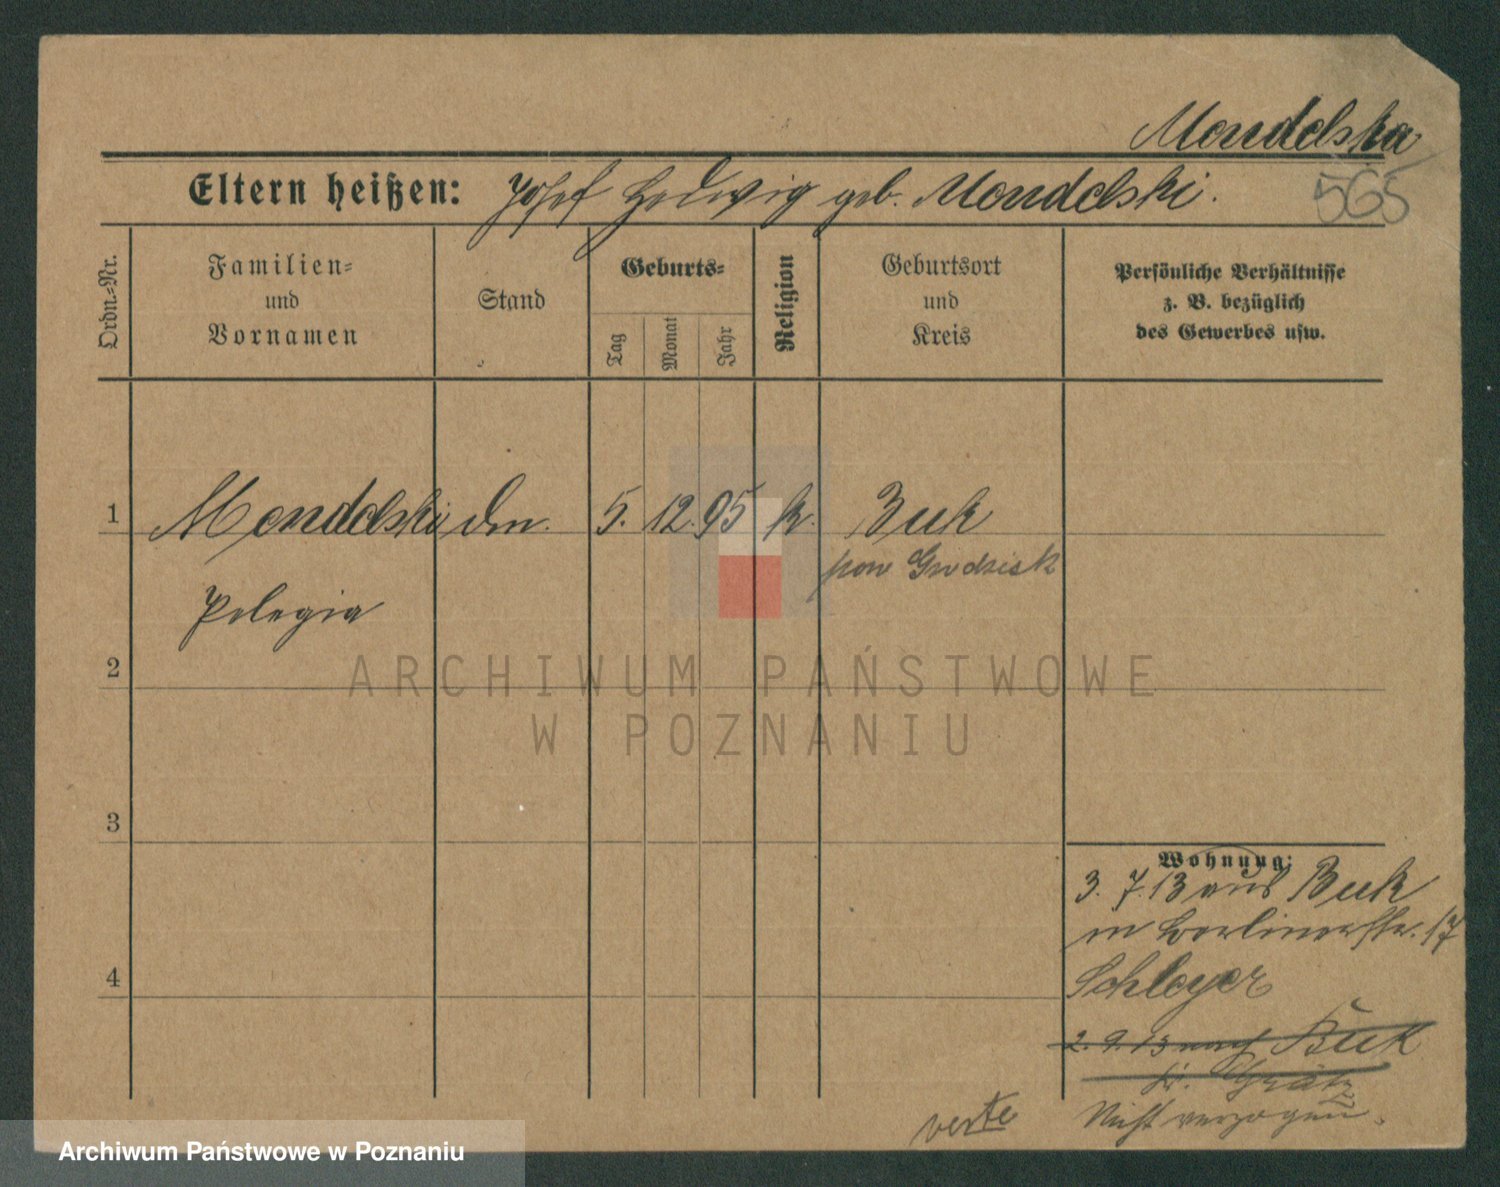 Mondelska
Eltern heißen: Josef Hedwig geb. Mondelski.
565
Ordn.-Nr.
Familien-
und
Vornamen
Stand
Geburts-
Tag
Monat
Jahr
Religion
Geburtsort
und
Kreis
Persönliche Verhältnisse
z. B. bezüglich
des Gewerbes usw.
1 Mondelski 5. 12. 95 k. Buk
pow Grodzisk
Pelagia
2
ARCHIWUM PAŃSTWOWE
W POZNANIU
3
Wohnung:
3. 7. 13 aus Buk
in Berlinerstr. 17
4
Schleyer
2. 9. 13 nach Buk
Kr. Grätz
verte
Nicht verzogen.
Archiwum Państwowe w Poznaniu